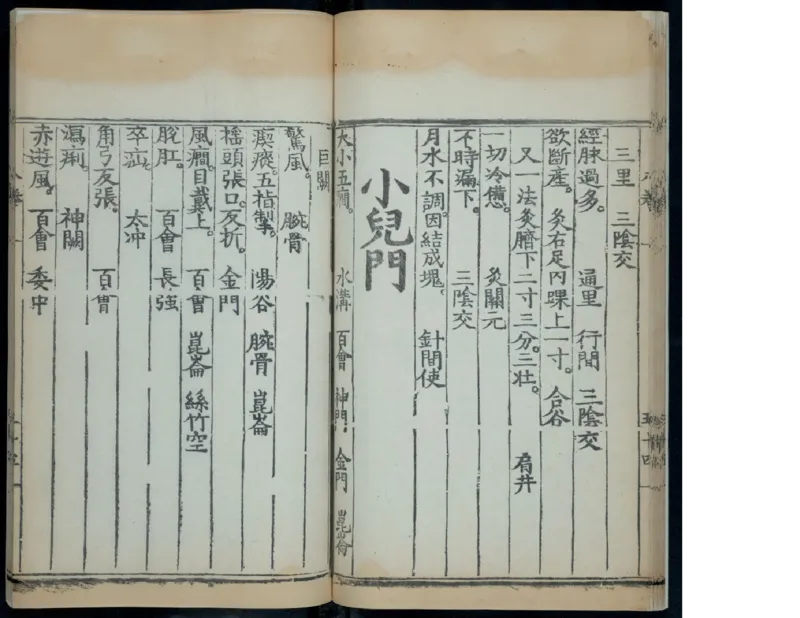 三里 三陰交
經脉過多。 通里 行間 三陰交
欲斷產。 灸右足內踝上一寸。 合谷
又一法灸臍下二寸三分。三壯。 肩井
一切冷憊。 灸關元
不時漏下。 三陰交
月水不調。因結成塊。 針間使
小兒門
大小五癎。 水溝 百會 神門 金門 崑崙
巨闕
驚風。 腕骨
瘈瘲。五指掣。 陽谷 腕骨 崑崙
搖頭張口。反折。 金門
風癎。目戴上。 百會 崑崙 絲竹空
脫肛。 百會 長強
卒疝。 太冲
角弓反張。 百會
瀉痢。 神闕
赤遊風。 百會 委中